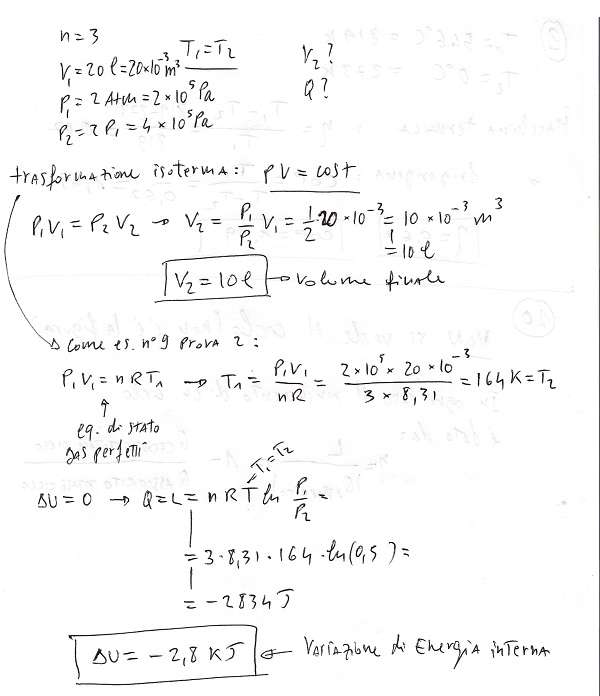 n = 3
V₁ = 20 l = 20×10⁻³ m³ T₁ = T₂ V₂ ?
P₁ = 2 Atm = 2×10⁵ Pa Q ?
P₂ = 2 P₁ = 4×10⁵ Pa
trasformazione isoterma: PV = cost
P₁V₁ = P₂V₂ → V₂ = P₁/P₂ V₁ = 1/2 · 20×10⁻³ = 10×10⁻³ m³
= 10 l
V₂ = 10 l → volume finale
Come es. n° 9 Prova 2:
P₁V₁ = nRT₁ → T₁ = P₁V₁/nR = 2×10⁵ × 20×10⁻³ / 3 × 8,31 = 164 K = T₂
eq. di stato
gas perfetti
T₁ = T₂
ΔU = 0 → Q = L = nRT ln P₁/P₂ =
= 3 · 8,31 · 164 · ln(0,5) =
= -2834 J
ΔU = -2,8 KJ ← Variazione di Energia interna